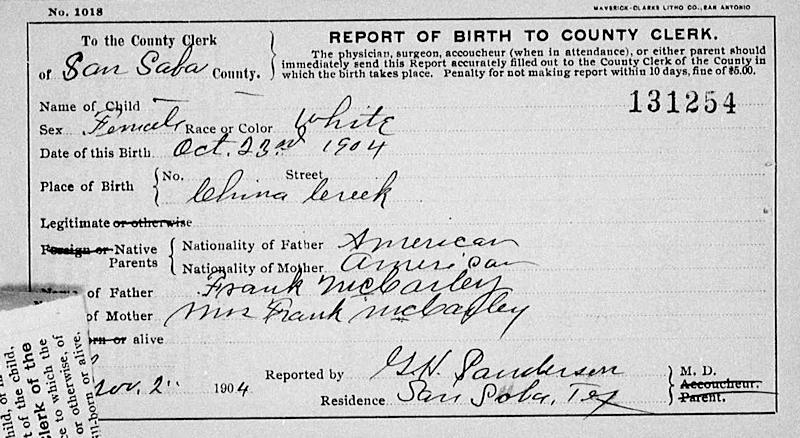 No. 1018
MAVERICK-CLARKE LITHO CO., SAN ANTONIO
To the County Clerk
of San Saba County.
REPORT OF BIRTH TO COUNTY CLERK.
The physician, surgeon, accoucheur (when in attendance), or either parent should
immediately send this Report accurately filled out to the County Clerk of the County in
which the birth takes place. Penalty for not making report within 10 days, fine of $5.00.
131254
Name of Child —
Sex Female Race or Color White
Date of this Birth Oct. 23rd 1904
Place of Birth No. Street
China Creek
Legitimate or otherwise
Foreign or Native Parents
Nationality of Father American
Nationality of Mother American
of Father Frank McCarley
of Mother Mrs Frank McCarley
born or alive
Nov. 2" 1904
Reported by G.H. Sanderson M. D.
Accoucheur.
Parent.
Residence San Saba, Tex
child, or
t of the child,
clerk of the
ce to which the
or otherwise, of
ill-born or alive.